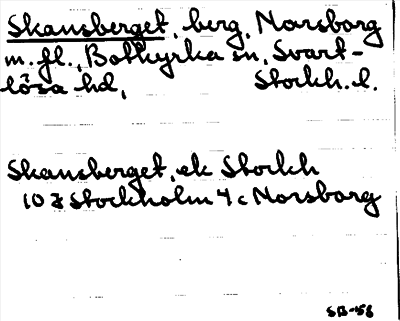 Skansberget, berg, Norsborg
m.fl., Botkyrka sn, Svart-
lösa hd, Stockh. l.
Skansberget, ek Stockh
10 I Stockholm 4 c Norsborg
SB-58